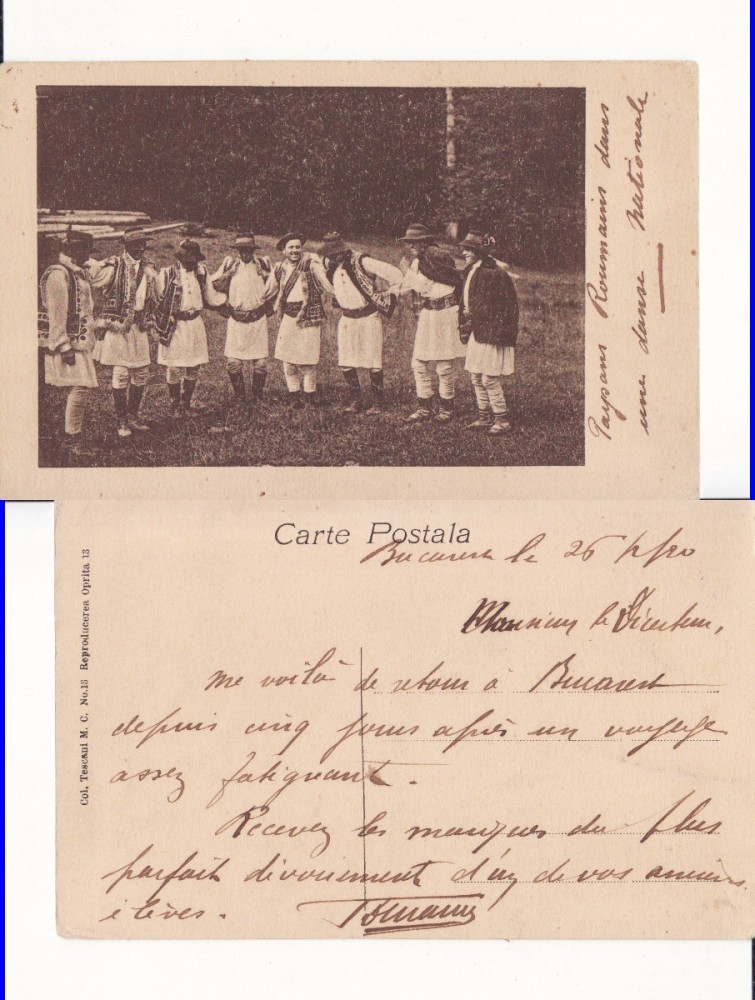 Paysans Roumains dans
une danse nationale
Carte Postala
Col. Tescani M. C. No.13 Reproducerea Oprita 13
Bucarest le 26
Monsieur le Directeur,
me voilà de retour à Bucarest
depuis cinq jours après un voyage
assez fatiguant.
Recevez les marques du plus
parfait dévouement d'un de vos anciens
élèves.